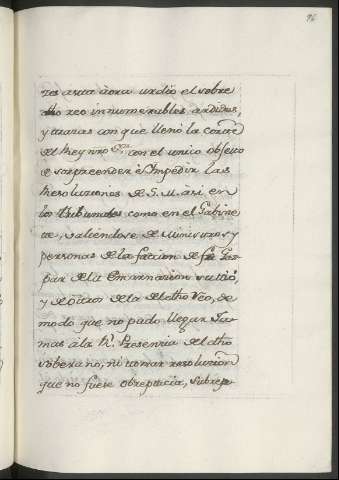 96
res asta aora urdio el sobre
dho reo innumerables ardides,
y trazas con que llenó la corte
del Reyno con el unico objeto
de sorprender è Impedir las
Resoluciones de S. M. asi en
los tribunales como en el Gabine
te, valiendose de Ministros y
personas de la faccion de Fr. Gas-
par de la Encarnacion su tio,
y de otros de la del dho Reo, de
modo que no pudo llegar Ja
mas à la Rl. Presencia del dho
soberano, ni tomar resolucion
que no fuese obrepticia, subrep